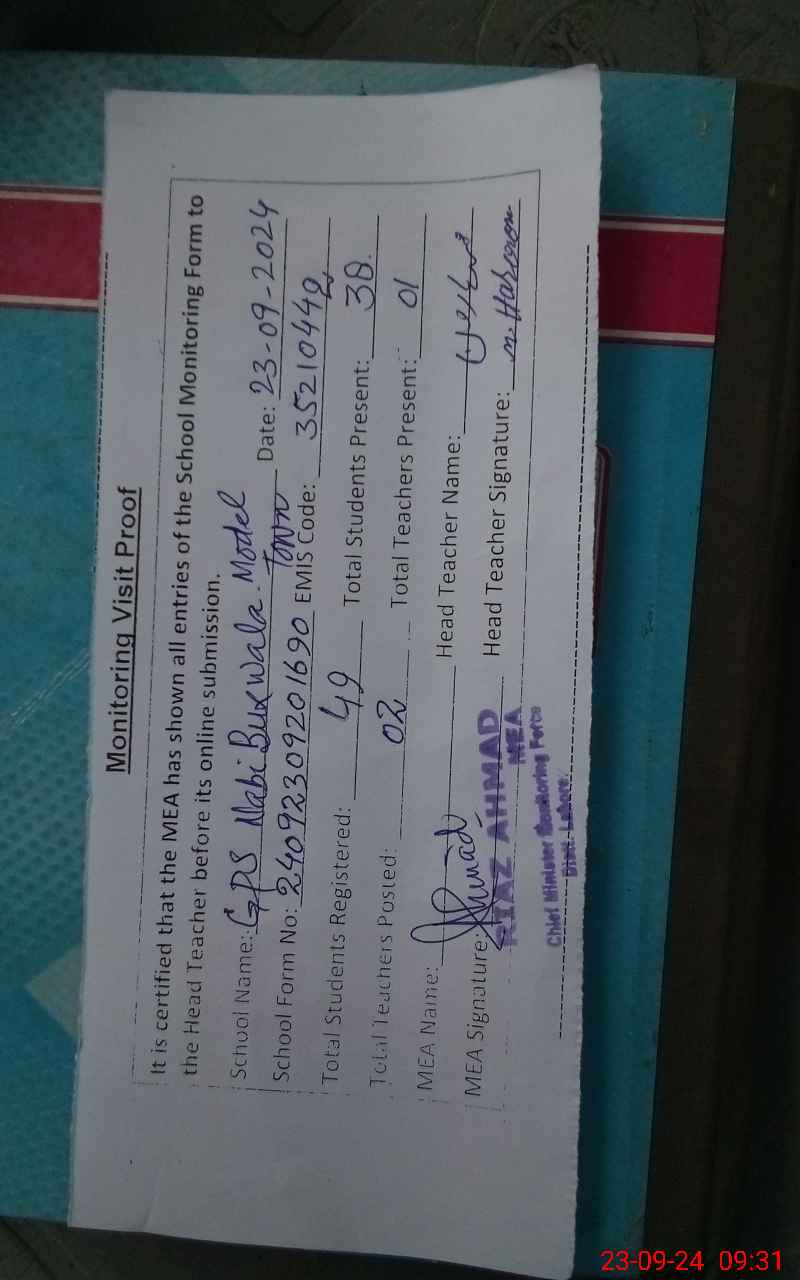 Monitoring Visit Proof
It is certified that the MEA has shown all entries of the School Monitoring Form to
the Head Teacher before its online submission.
School Name: GPS Nabi Bux wala Model Town Date: 23-09-2024
School Form No: 24092309201690 EMIS Code: 35210442
Total Students Registered: 49 Total Students Present: 38.
Total Teachers Posted: 02 Total Teachers Present: 01
MEA Name: Head Teacher Name:
MEA Signature: Ahmad Head Teacher Signature: M. Haroon
RIAZ AHMAD
MEA
Chief Minister Monitoring Force
Distt. Lahore.
23-09-24 09:31